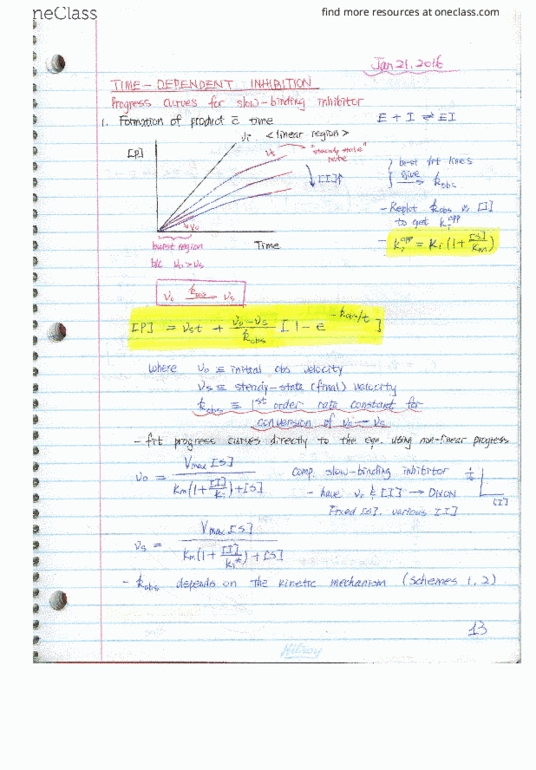 neClass
find more resources at oneclass.com
Jan 21, 2016
TIME-DEPENDENT INHIBITION
Progress curves for slow-binding inhibitor
1. Formation of product c̄ time
E + I ⇌ EI
<linear region>
[P]
"steady-state" rate
[I]↑
} best fit lines
} give → k obs
- Replot k obs vs [I]
to get Ki app
- Ki app = Ki (1 + [S]/Km)
v0
burst region
Time
b/c v0 > vs
v0 → vs
[P] = vs t + (v0 - vs)/k obs [1 - e^(-k obs/t)]
where v0 ≡ initial obs velocity
vs ≡ steady-state (final) velocity
k obs ≡ 1st order rate constant for
conversion of v0 → vs
- fit progress curves directly to the eqn. using non-linear progress
v0 = Vmax [S] / (Km (1 + [I]/Ki) + [S])
Comp. slow-binding inhibitor
- have v0 & [I] → DIXON
Fixed [S], various [I]
[I]
vs = Vmax [S] / (Km (1 + [I]/Ki*) + [S])
- k obs depends on the kinetic mechanism (Schemes 1, 2)
13
Hilroy